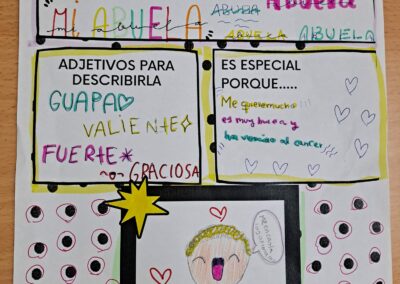 ABUELA
Abuela
MI ABUELA
mi abuela
ABUELA
abuela
ABUELA
ADJETIVOS PARA
DESCRIBIRLA
GUAPA
VALIENTE
FUERTE
GRACIOSA
ES ESPECIAL
PORQUE.....
Me quiere mucho!!!
es muy buena y
ha vencido al cancer